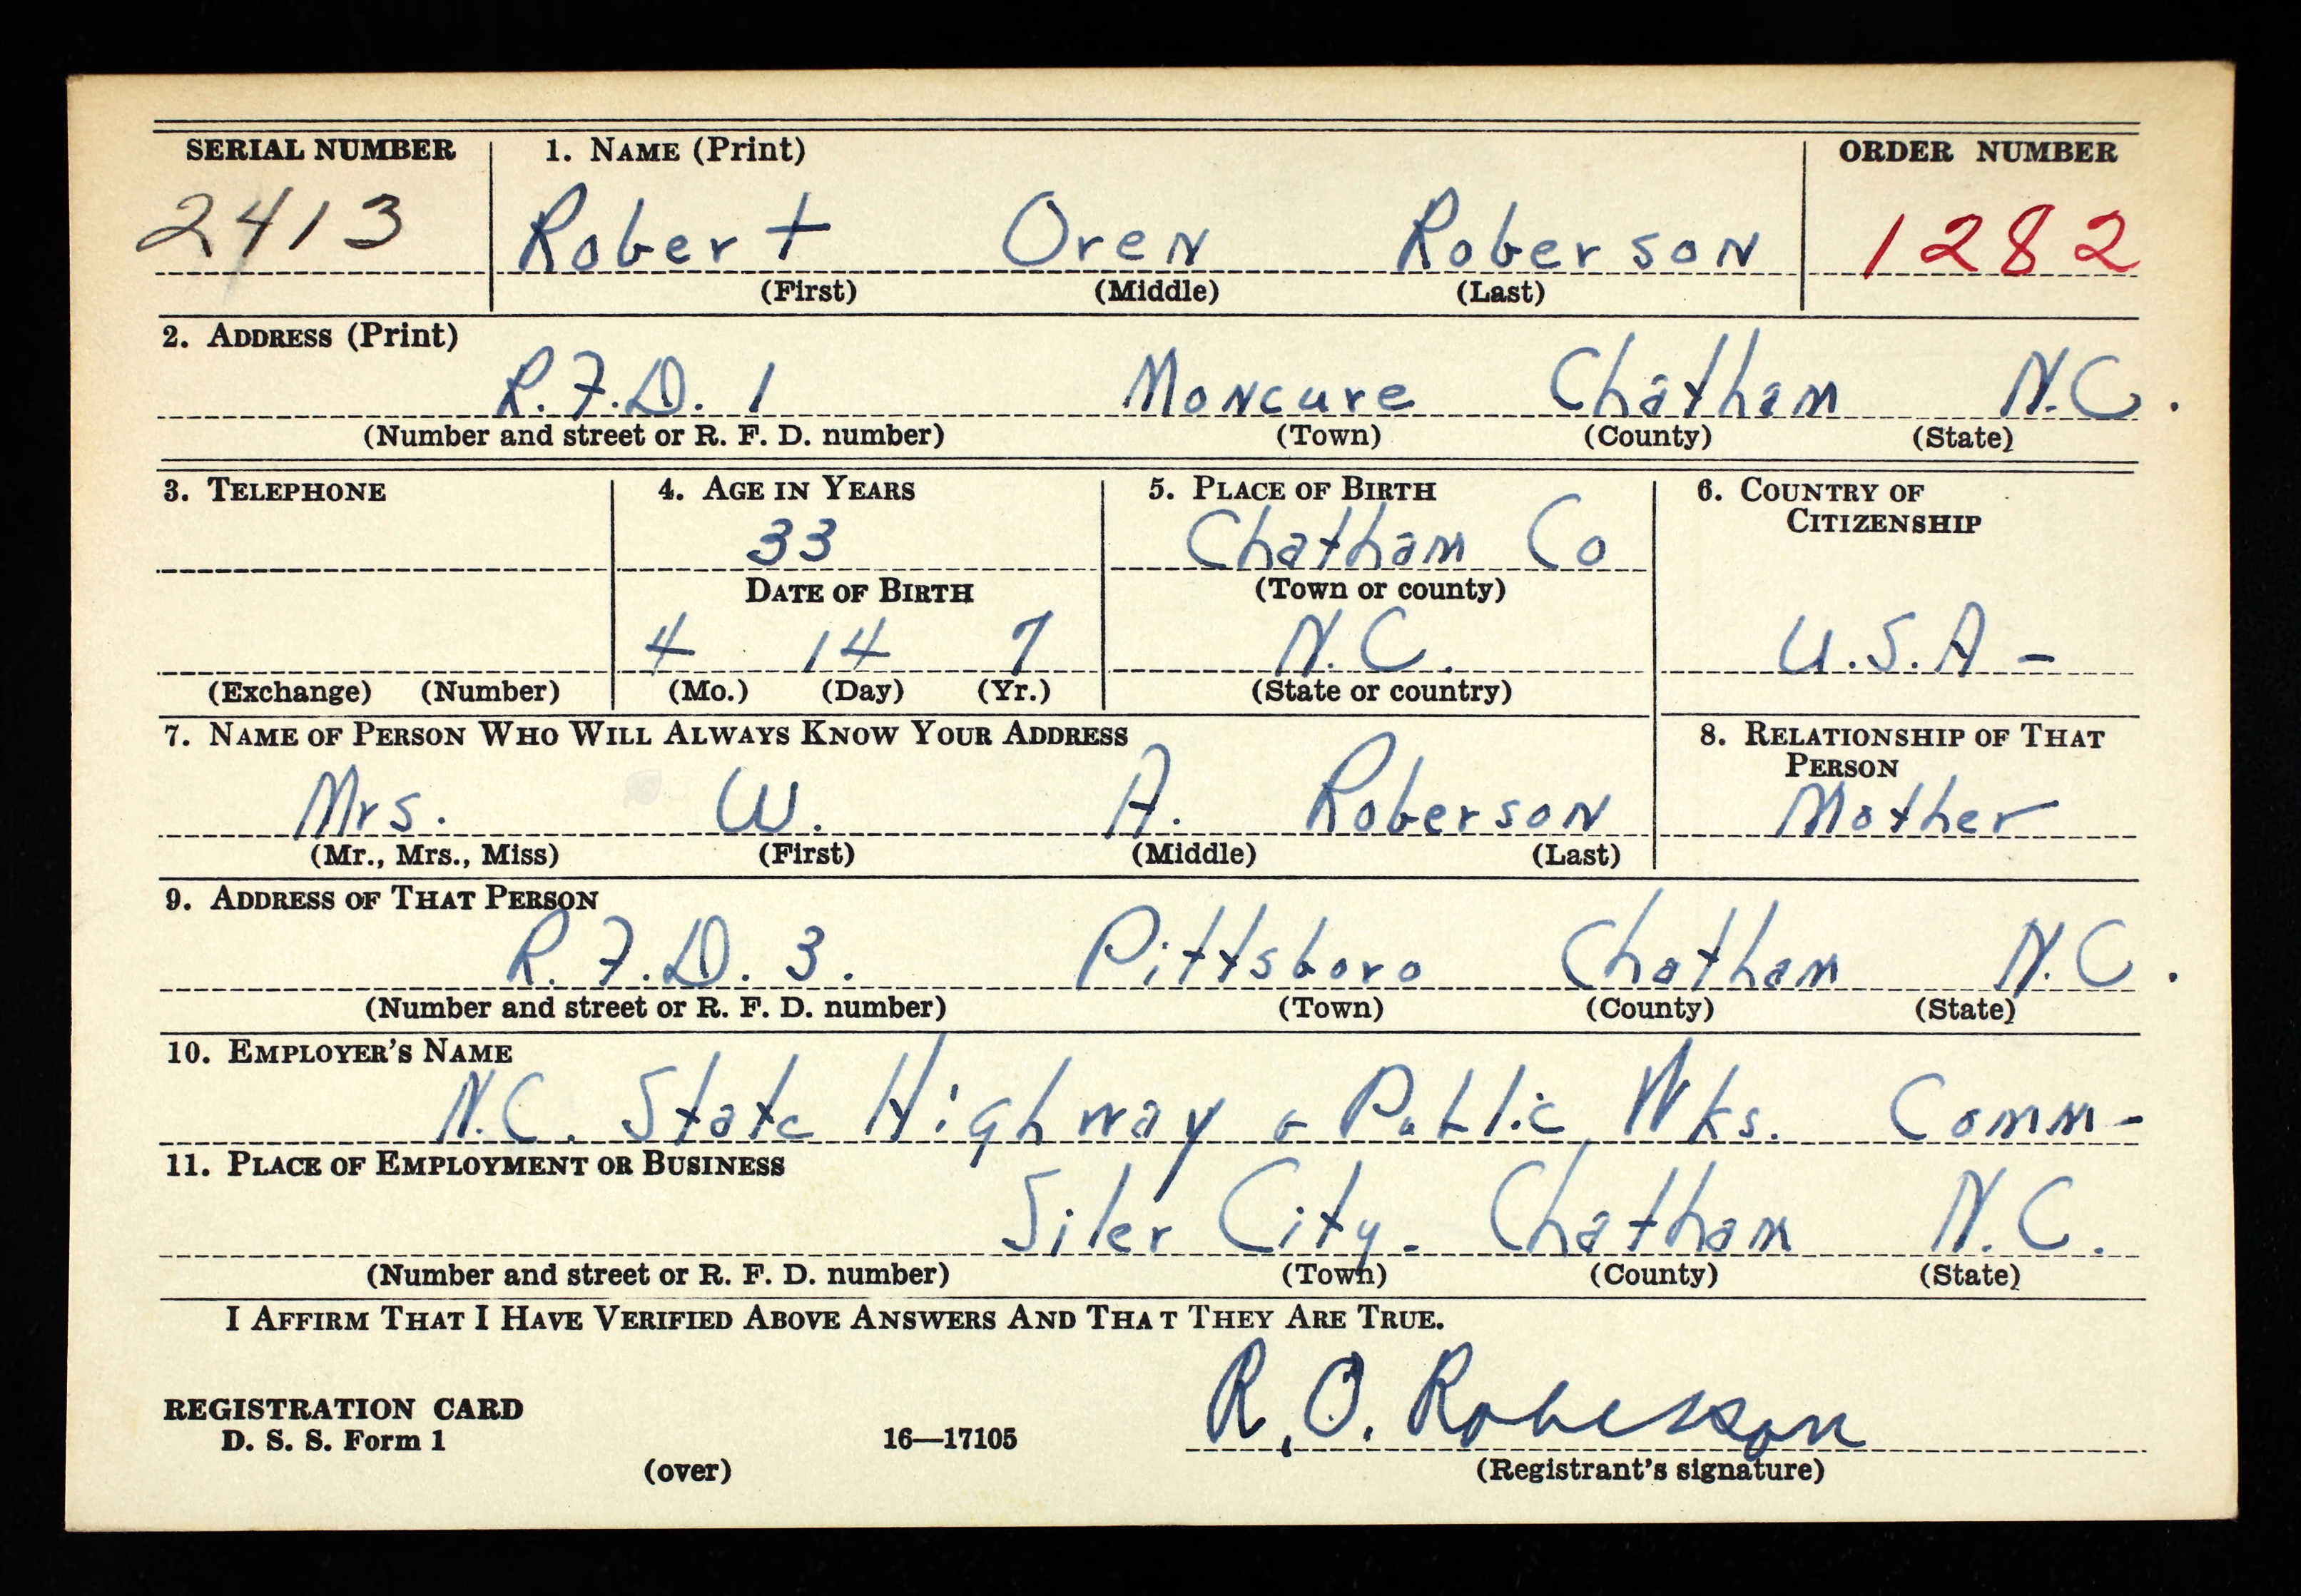 SERIAL NUMBER 1. NAME (Print) ORDER NUMBER
2413 Robert Oren Roberson 1282
(First) (Middle) (Last)
2. ADDRESS (Print)
R.F.D. 1 Moncure Chatham N.C.
(Number and street or R. F. D. number) (Town) (County) (State)
3. TELEPHONE 4. AGE IN YEARS 5. PLACE OF BIRTH 6. COUNTRY OF
CITIZENSHIP
33 Chatham Co
DATE OF BIRTH (Town or county)
4 14 7 N.C. U.S.A -
(Exchange) (Number) (Mo.) (Day) (Yr.) (State or country)
7. NAME OF PERSON WHO WILL ALWAYS KNOW YOUR ADDRESS 8. RELATIONSHIP OF THAT
PERSON
Mrs. W. A. Roberson Mother
(Mr., Mrs., Miss) (First) (Middle) (Last)
9. ADDRESS OF THAT PERSON
R.F.D. 3. Pittsboro Chatham N.C.
(Number and street or R. F. D. number) (Town) (County) (State)
10. EMPLOYER'S NAME
N.C. State Highway & Public Wks. Comm-
11. PLACE OF EMPLOYMENT OR BUSINESS
Siler City. Chatham N.C.
(Number and street or R. F. D. number) (Town) (County) (State)
I AFFIRM THAT I HAVE VERIFIED ABOVE ANSWERS AND THAT THEY ARE TRUE.
R.O. Roberson
REGISTRATION CARD
D. S. S. Form 1 16—17105
(over) (Registrant's signature)